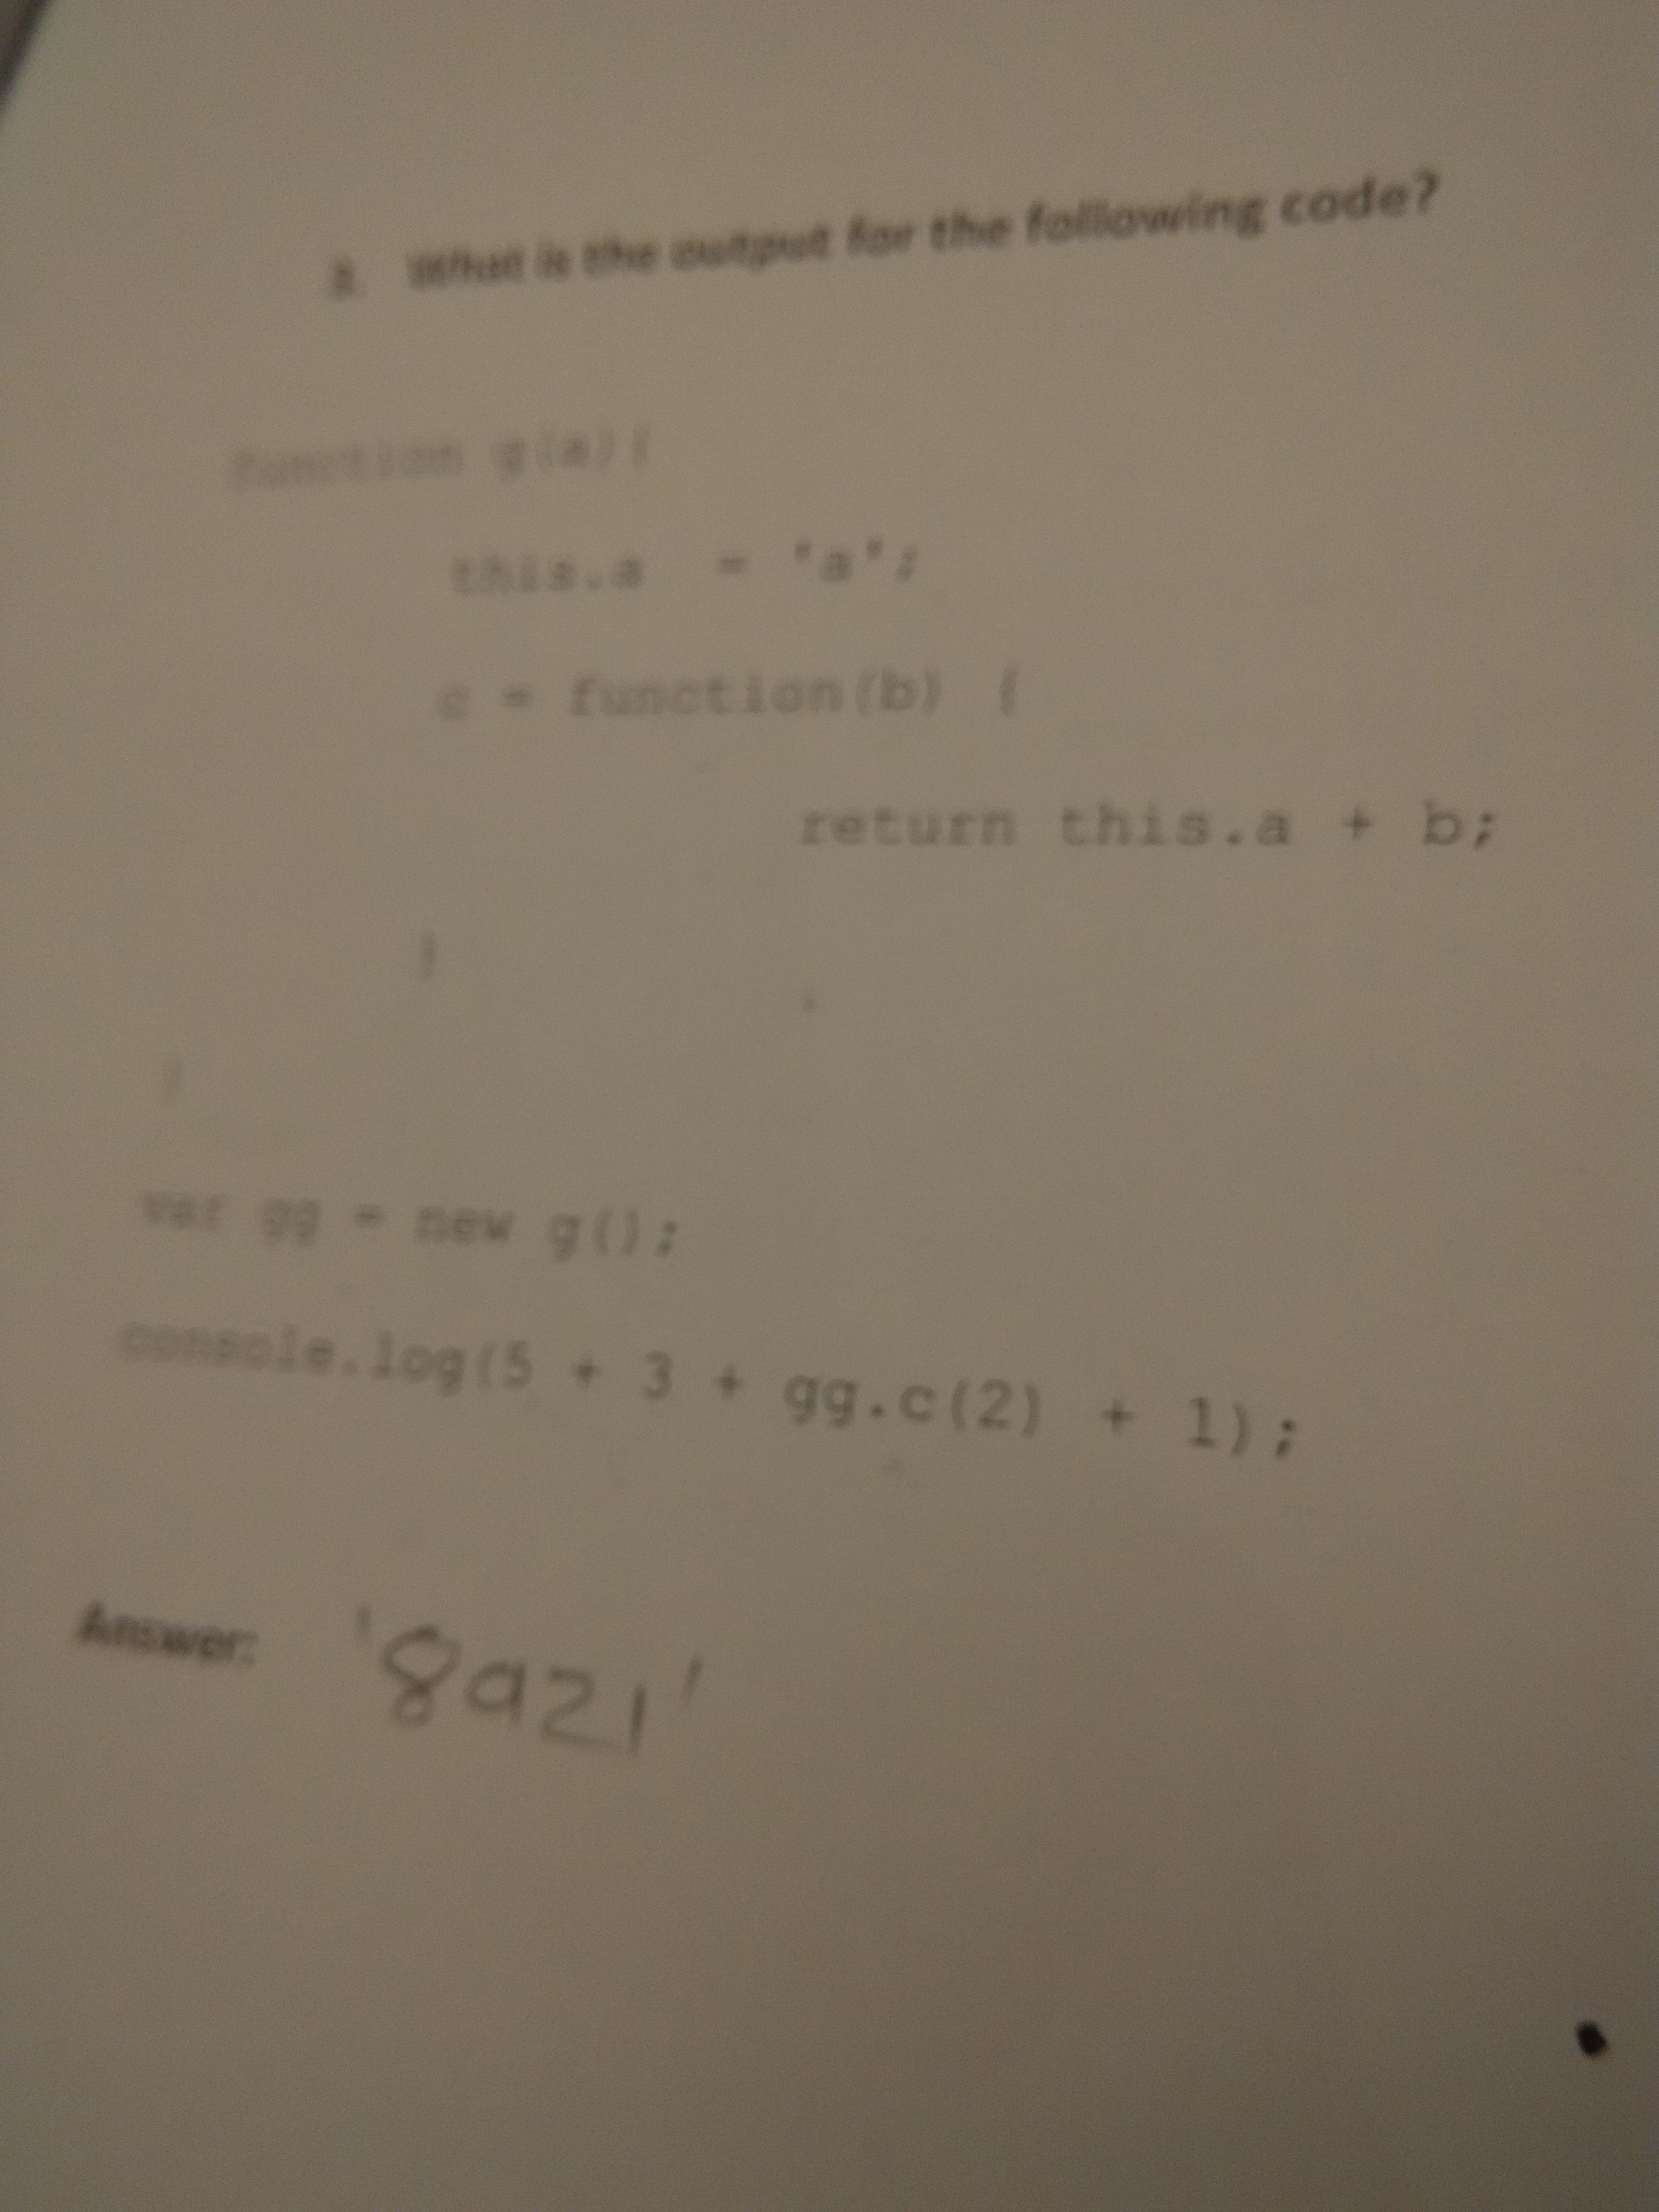 3. What is the output for the following code?
function g(a){
this.a = 'a';
c = function(b) {
return this.a + b;
}
}
var gg = new g();
console.log(5 + 3 + gg.c(2) + 1);
Answer: '8a21'